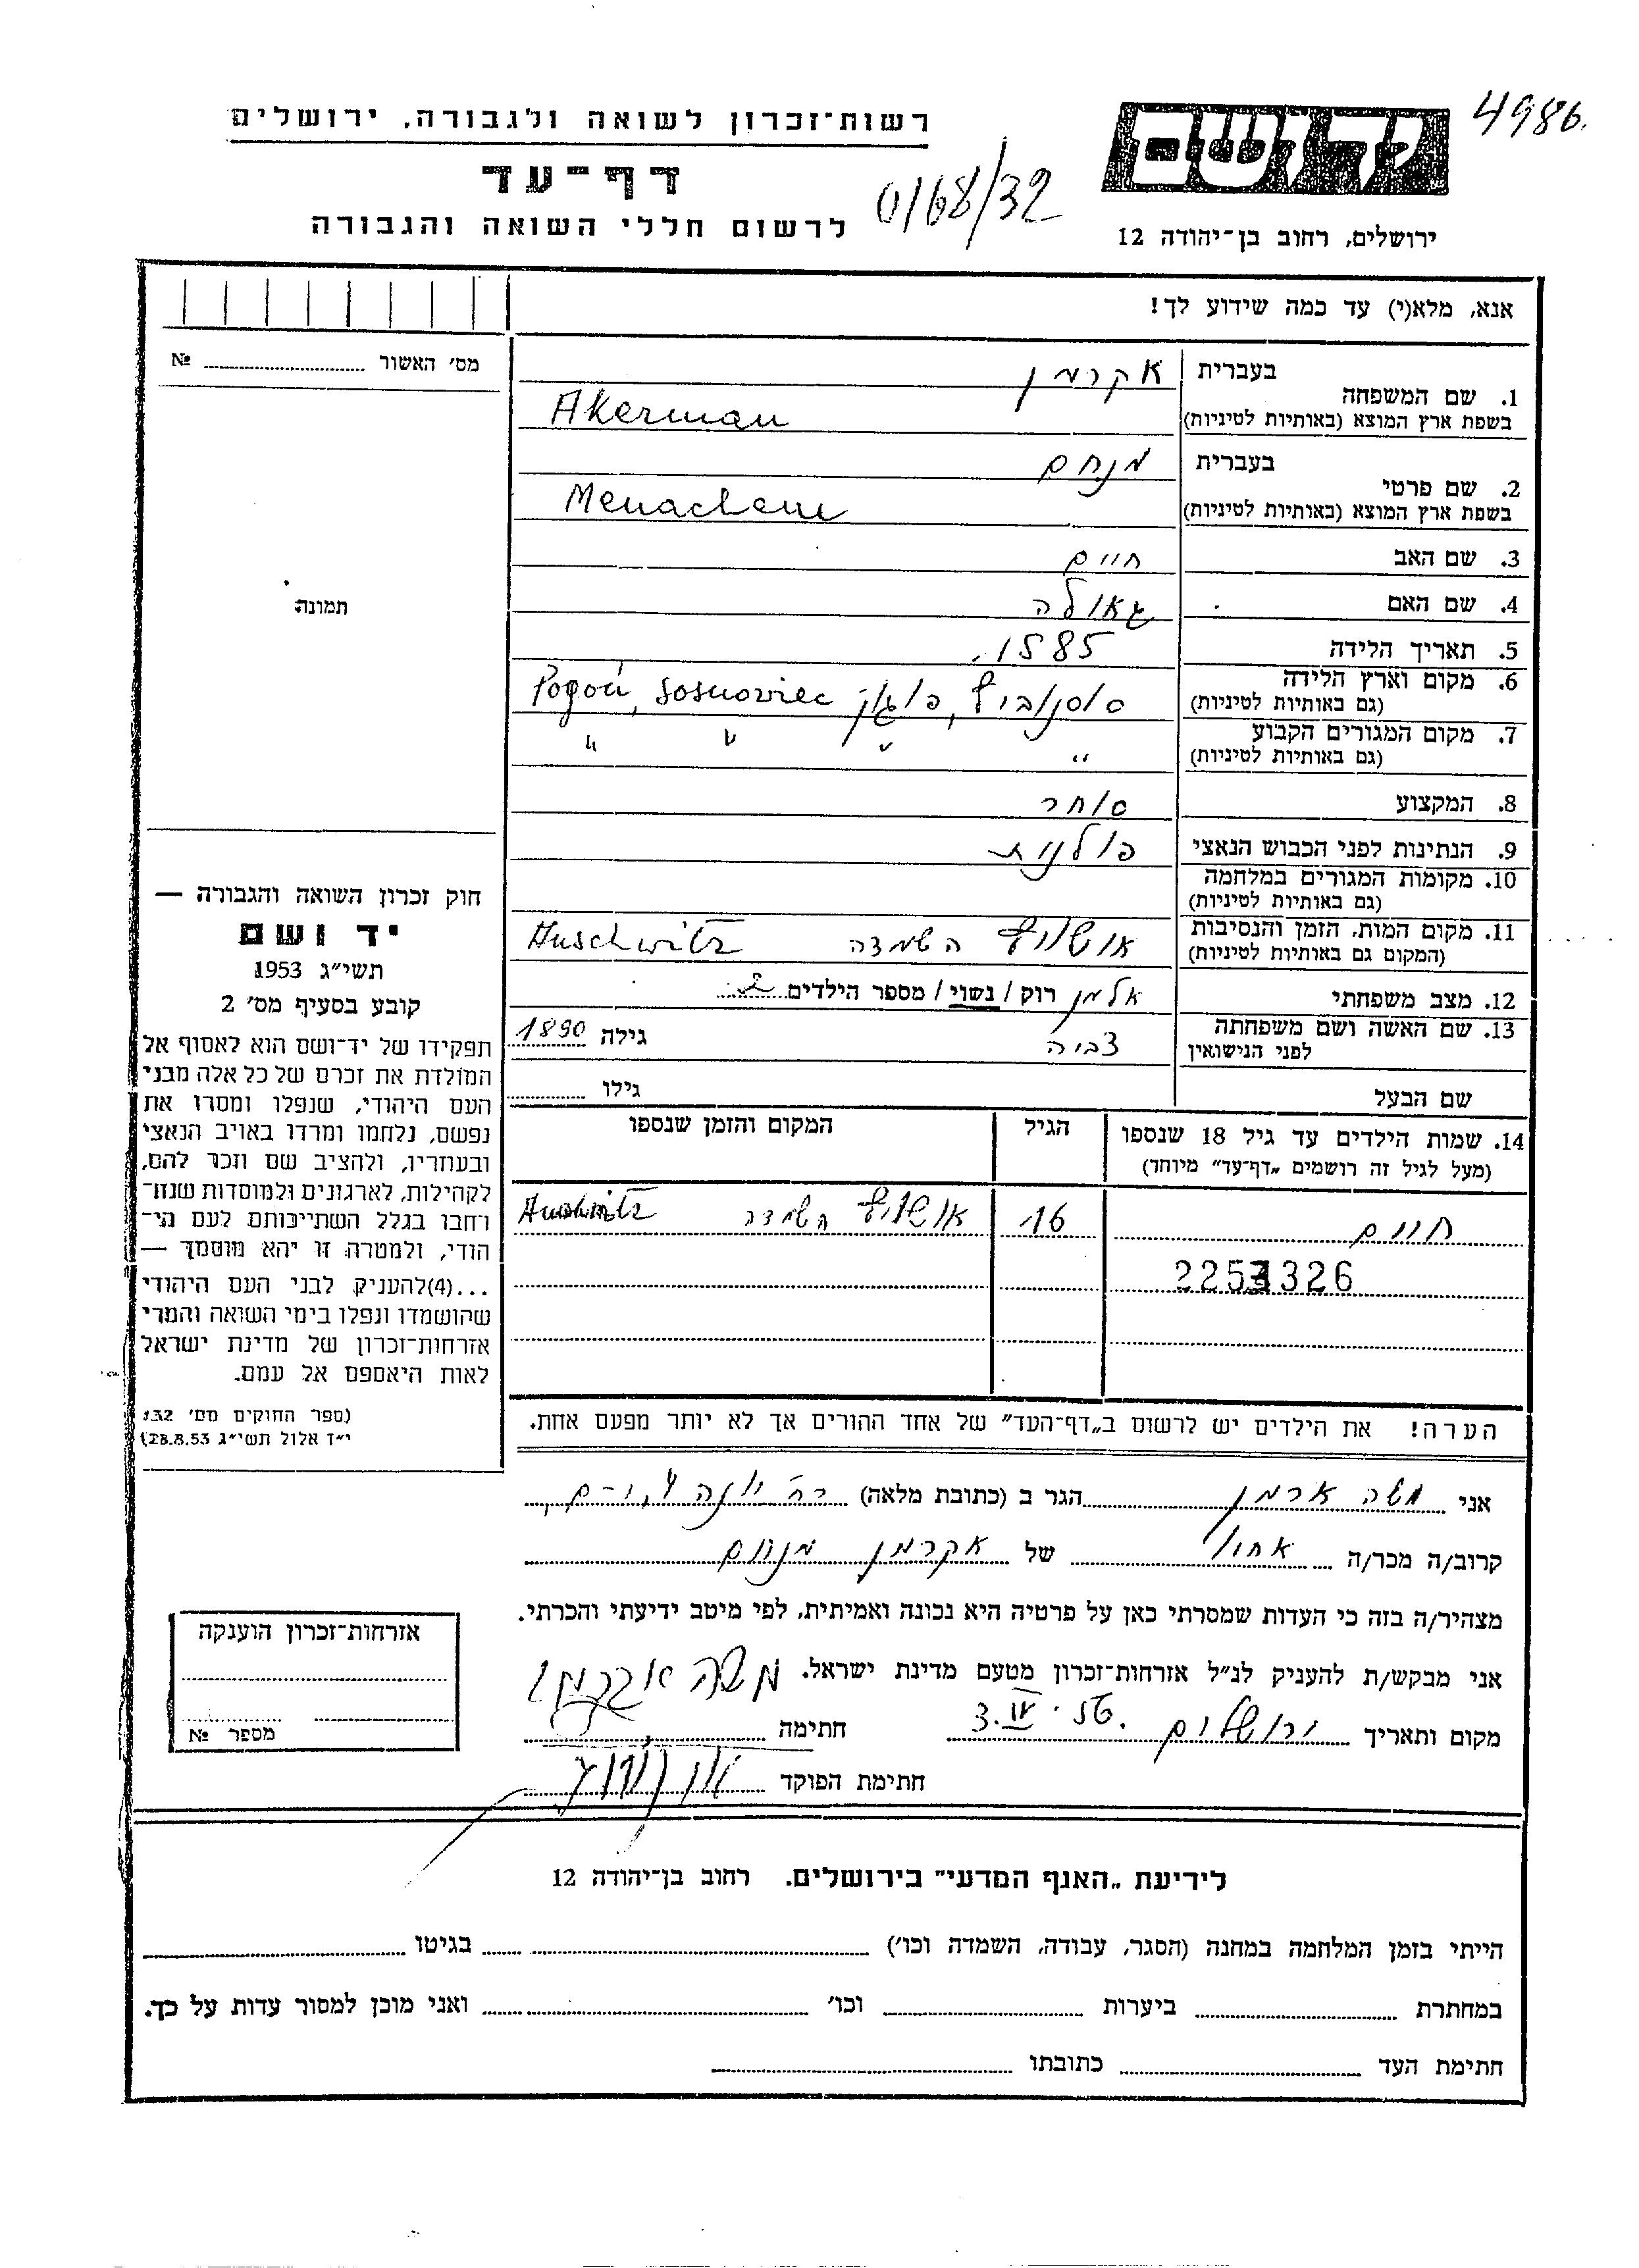 4986.
רשות־זכרון לשואה ולגבורה, ירושלים
דף־עד
לרשום חללי השואה והגבורה
0/68/32
יד ושם
ירושלים, רחוב בן־יהודה 12
אנא, מלא(י) עד כמה שידוע לך!
מס׳ האשור № 
1. שם המשפחה
בעברית אקרמן
בשפת ארץ המוצא (באותיות לטיניות) Akerman
2. שם פרטי
בעברית מנחם
בשפת ארץ המוצא (באותיות לטיניות) Menachem
3. שם האב חיים
4. שם האם גאולה
5. תאריך הלידה 1885.
6. מקום וארץ הלידה סוסנוביץ, פוגון Pogoń, Sosnoviec
(גם באותיות לטיניות)
7. מקום המגורים הקבוע " " " "
(גם באותיות לטיניות)
8. המקצוע סוחר
9. הנתינות לפני הכבוש הנאצי פולנית
10. מקומות המגורים במלחמה
(גם באותיות לטיניות)
11. מקום המות, הזמן והנסיבות אושויץ השמדה Auschwitz
(המקום גם באותיות לטיניות)
12. מצב משפחתי אלמן רוק / נשוי / מספר הילדים 2
13. שם האשה ושם משפחתה צביה גילה 1890
לפני הנישואין
שם הבעל גילו
14. שמות הילדים עד גיל 18 שנספו הגיל המקום והזמן שנספו
(מעל לגיל זה רושמים „דף־עד״ מיוחד)
חיים 16 אושויץ השמדה Auschwitz
2253326
הערה! את הילדים יש לרשום ב„דף־העד״ של אחד ההורים אך לא יותר מפעם אחת.
תמונה
חוק זכרון השואה והגבורה —
יד ושם
תשי״ג 1953
קובע בסעיף מס׳ 2
תפקידו של יד־ושם הוא לאסוף אל
המולדת את זכרם של כל אלה מבני
העם היהודי, שנפלו ומסרו את
נפשם, נלחמו ומרדו באויב הנאצי
ובעוזריו, ולהציב שם וזכר להם,
לקהילות, לארגונים ולמוסדות שנח־
רבו בגלל השתייכותם לעם הי־
הודי, ולמטרה זו יהא מוסמך —
...(4)להעניק לבני העם היהודי
שהושמדו ונפלו בימי השואה והמרי
אזרחות־זכרון של מדינת ישראל
לאות היאספם אל עמם.
(ספר החוקים מס׳ 132,
י״ז אלול תשי״ג 28.8.53)
אני משה ארמן הגר ב (כתובת מלאה) רח׳ יונה י־ם,
קרוב/ה מכר/ה אחיו של אקרמן מנחם
מצהיר/ה בזה כי העדות שמסרתי כאן על פרטיה היא נכונה ואמיתית, לפי מיטב ידיעתי והכרתי.
אני מבקש/ת להעניק לנ״ל אזרחות־זכרון מטעם מדינת ישראל.
מקום ותאריך ירושלים 3. חתימה משה
חתימת הפוקד
אזרחות־זכרון הוענקה
מספר №
לידיעת „האגף המדעי״ בירושלים. רחוב בן־יהודה 12
הייתי בזמן המלחמה במחנה (הסגר, עבודה, השמדה וכו׳) בגיטו
במחתרת ביערות וכו׳ ואני מוכן למסור עדות על כך.
חתימת העד כתובתו